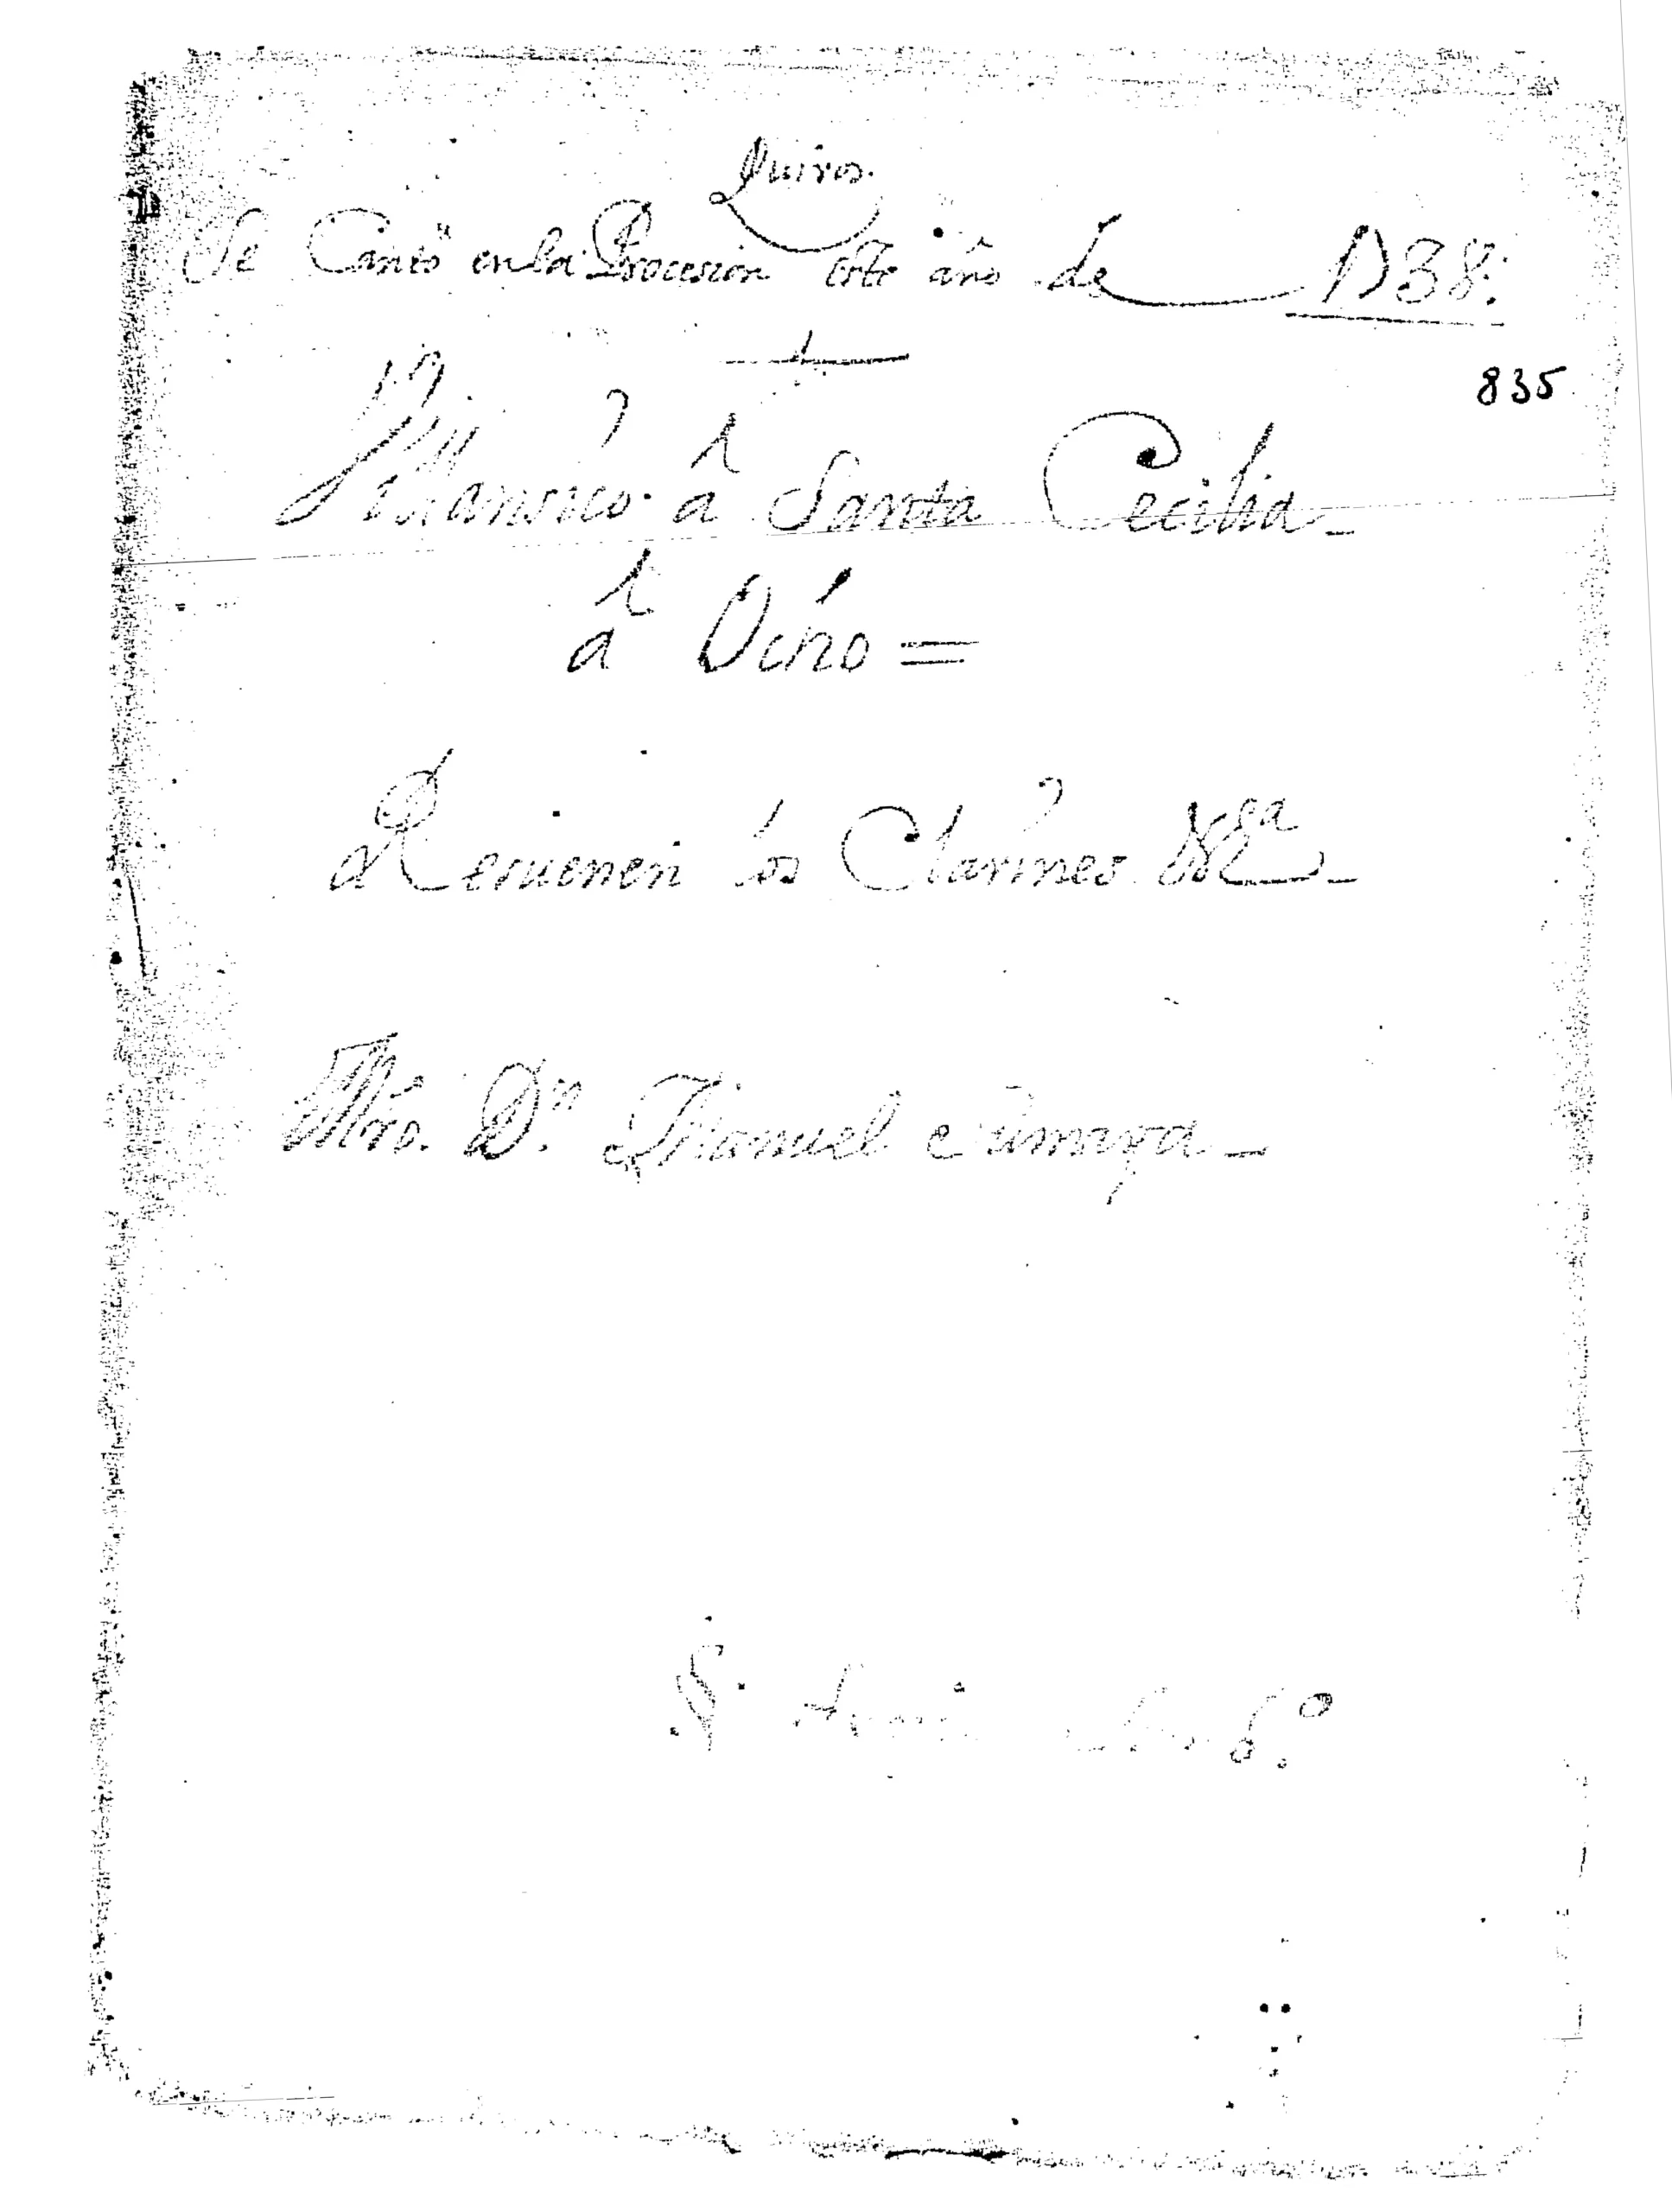 Quiros.
Se Cantô en la Procesion este año de 1738.
835
Villansico â Santa Cecilia
â Ocho =
Resuenen los Clarines &ª
Mro. Dⁿ. Manuel Sumaya